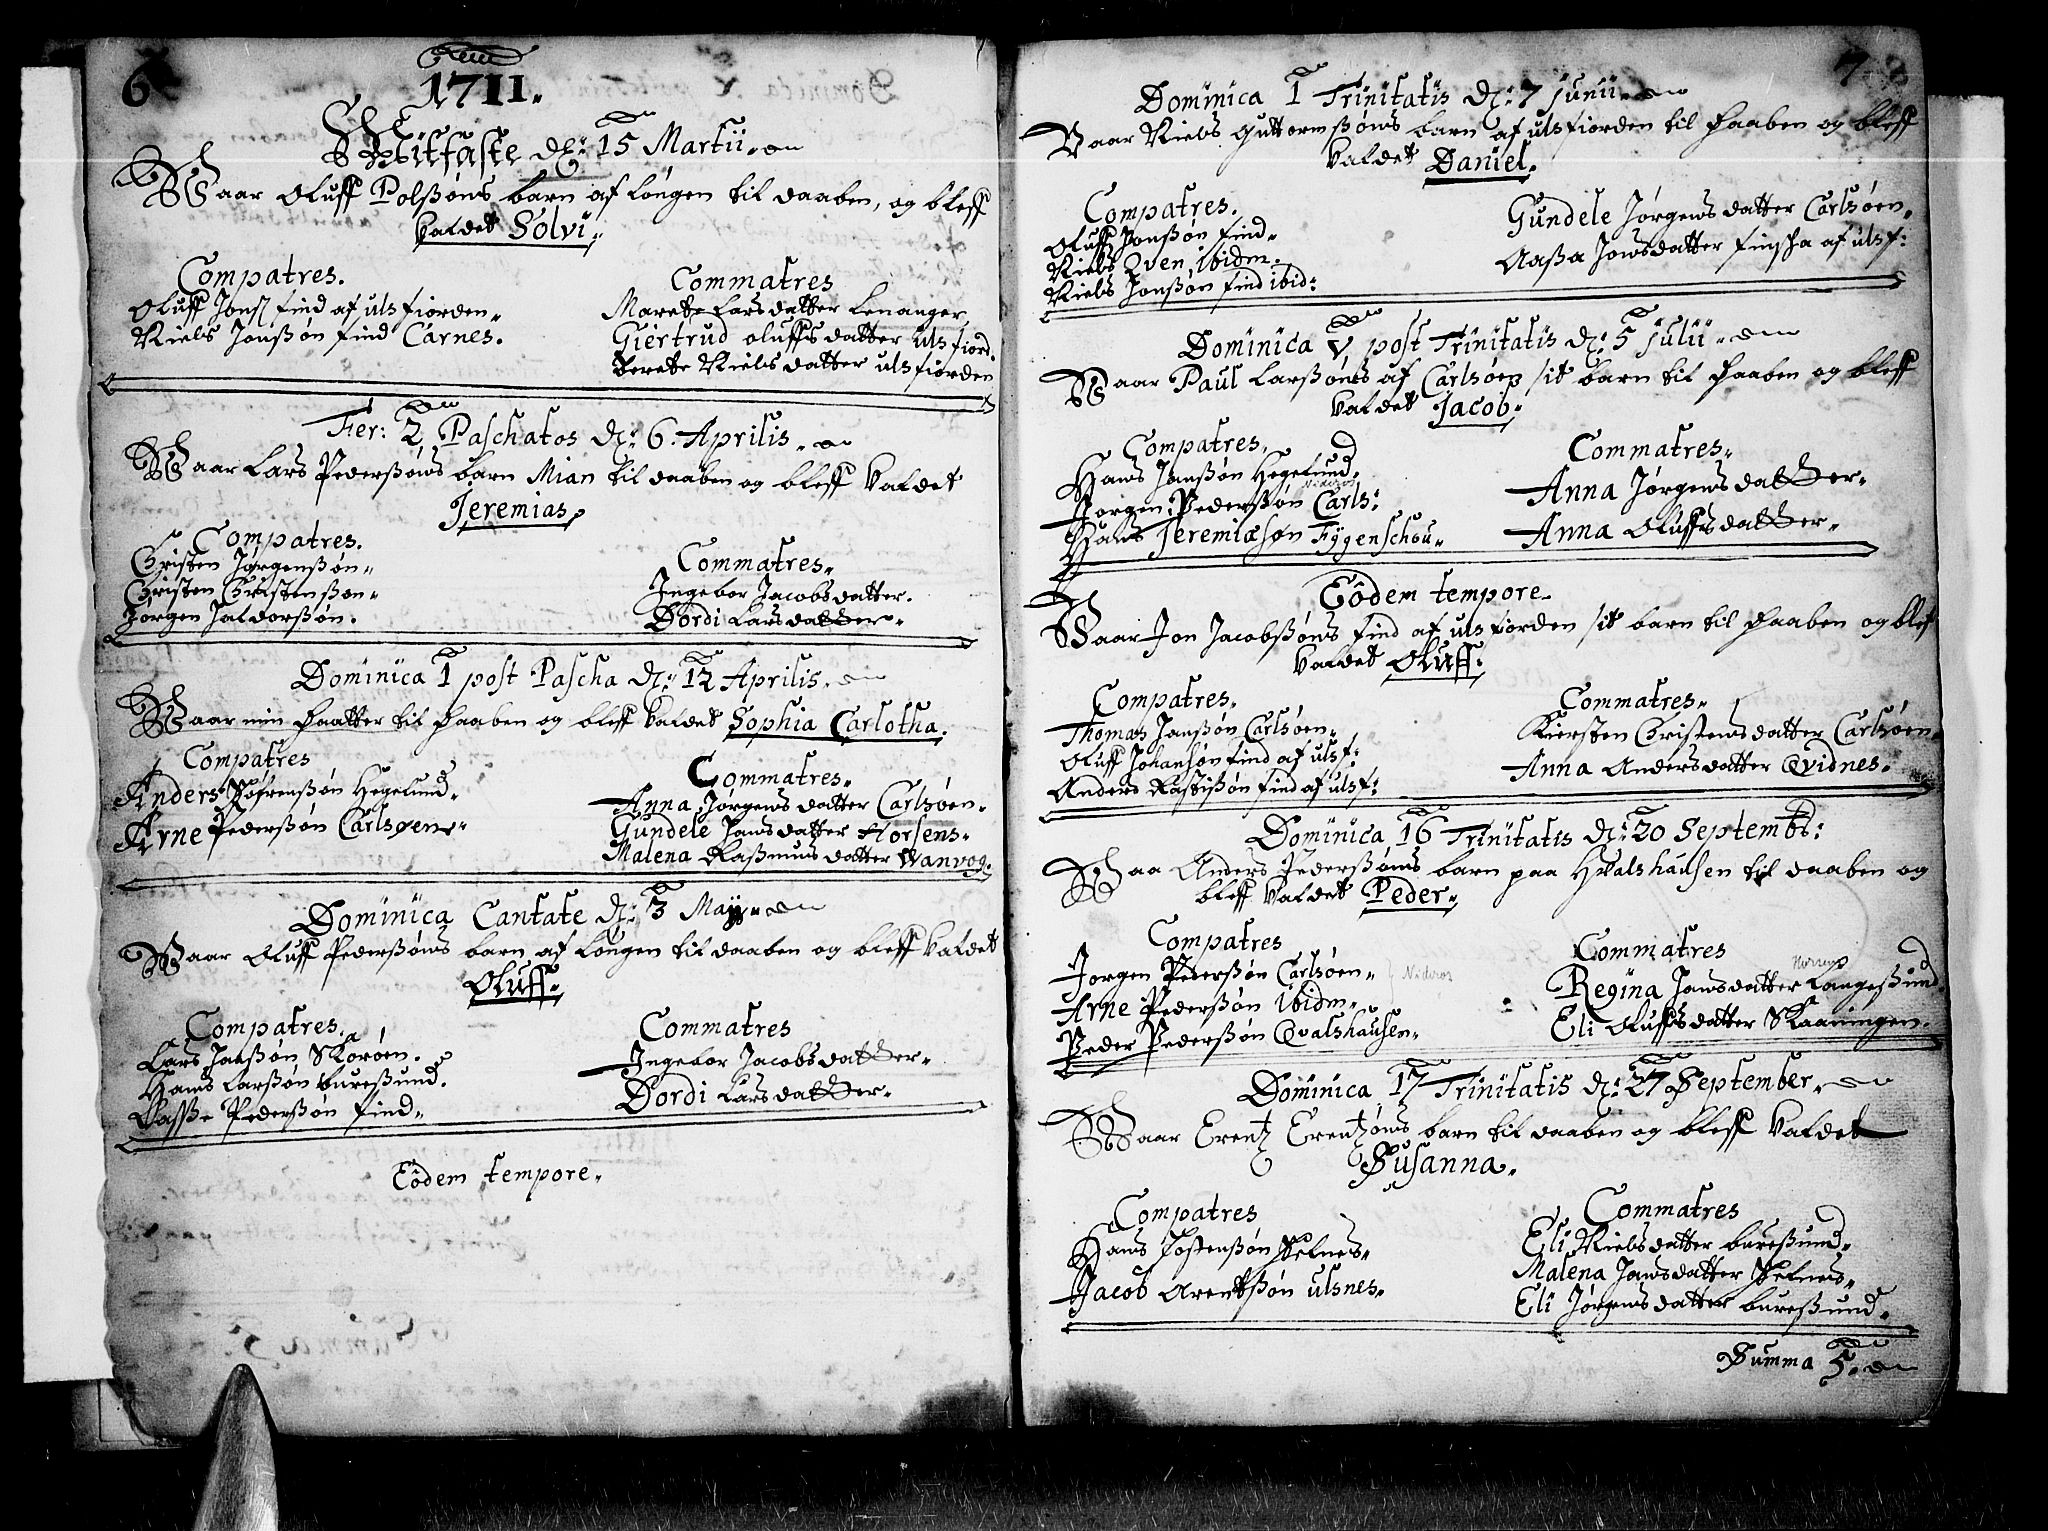 6
Anno
1711.
Mitfaste d: 15 Martii.
Waar Oluff Polssøns barn af Lÿngen til daaben, og bleff
kaldet Solvi.
Compatres.
Oluff Jonss find af ulsfiorden.
Niels Jonssøn find Carnes.
Commatres
Marete Larsdatter Lenanger
Giertrud oluffsdatter ulsfiord.
berete Nielsdatter ulsfiorden
Fer: 2 Paschatos d: 6. Aprilis.
Waar Lars Pederssøns barn Mian til daaben og bleff kaldet
Jeremias.
Compatres.
Christen Jørgenssøn.
Christen Christenssøn.
Jørgen Haldorssøn.
Commatres.
Ingebor Jacobsdatter.
Dordi Larsdatter.
Dominica 1 post Pascha d: 12 Aprilis.
Waar min daatter til daaben og bleff kaldet Sophia Carlotha.
Compatres
Anders Hegelund.
Arne Pederssøn Carlsøen.
Commatres.
Anna Jørgensdatter Carlsøen.
Gundele Jansdatter Horsens.
Malena Rassmusdatter Wanvog.
Dominica Cantate d: 3 Maÿ.
Waar Oluff Pederssøns barn af Lÿngen til daaben og bleff kaldet
Oluff.
Compatres.
Lars Janssøn Skorøen.
Hans Larssøn buressund.
Lasse Pederssøn find.
Commatres
Ingebor Jacobsdatter.
Dordi Larsdatter.
Eodem tempore.
7
Dominica 1 Trinitatis d: 7 Junii.
Waar Niels Guttormssøns barn af ulsfiorden til daaben og bleff
kaldet Daniel.
Compatres.
Oluff Jonssøn find.
Niels Qven ibidm.
Niels Jonssøn find ibid:
Gundele Jørgensdatter Carlsøen.
Aassa Jonsdatter af ulsf:
Dominica V post Trinitatis d: 5 Julii.
Waar Paul Larssøns af Carlsøen sit barn til daaben og bleff
kaldet Jacob.
Compatres.
Hans Janssøn Hegelund.
Nideros
Jørgen Pederssøn Carls:
Hans Jeremiæsøn Fÿgenschou.
Commatres.
Anna Jørgensdatter.
Anna Oluffsdatter.
Eodem tempore.
Waar Jon Jacobssøns find af ulsfiorden sit barn til daaben og blef
kaldet Oluff.
Compatres.
Thomas Janssøn Carlsøen.
Oluff Johansøn find af ulsf:
Anders Rastissøn find af ulsf:
Commatres.
Kiersten Christensdatter Carlsøen.
Anna Andersdatter Qvidnes.
Dominica 16 Trinitatis d: 20 Septembr:
Waa Anders Pederssøns barn paa Hvalshausen til daaben og
bleff kaldet Peder.
Compatres
Jorgen Pederssøn Carlsøen.
Nideros
Arne Pederssøn ibidm.
Peder Pederssøn Qvalshausen.
Commatres
Regina Jansdatter Langessund
Eli Oluffsdatter Skaaningen.
Dominica 17 Trinitatis d: 27 September.
Waar Erentz Erentzøns barn til daaben og bleff kaldet
Susanna.
Compatres
Hans Jostenssøn Helnes.
Jacob Arentssøn ulsnes.
Commatres
Eli Nielsdatter buressund.
Malena Jansdatter Helnes.
Eli Jørgensdatter buressund.
Summa 5.